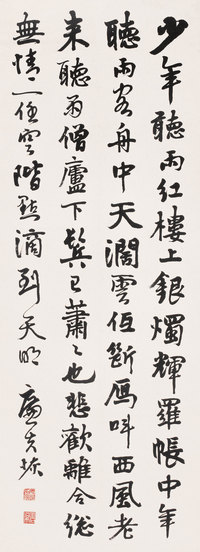 少年聽雨紅樓上銀燭輝羅帳中年
聽雨客舟中天濶雲低斷鴈叫西風老
来聽雨僧廬下鬢已蕭々也悲歡離合總
無情一任空階點滴到天明